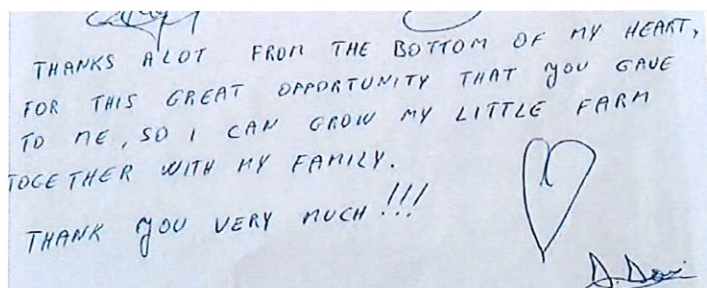 THANKS ALOT FROM THE BOTTOM OF MY HEART,
FOR THIS GREAT OPPORTUNITY THAT YOU GAVE
TO ME, SO I CAN GROW MY LITTLE FARM
TOGETHER WITH MY FAMILY.
THANK YOU VERY MUCH !!!